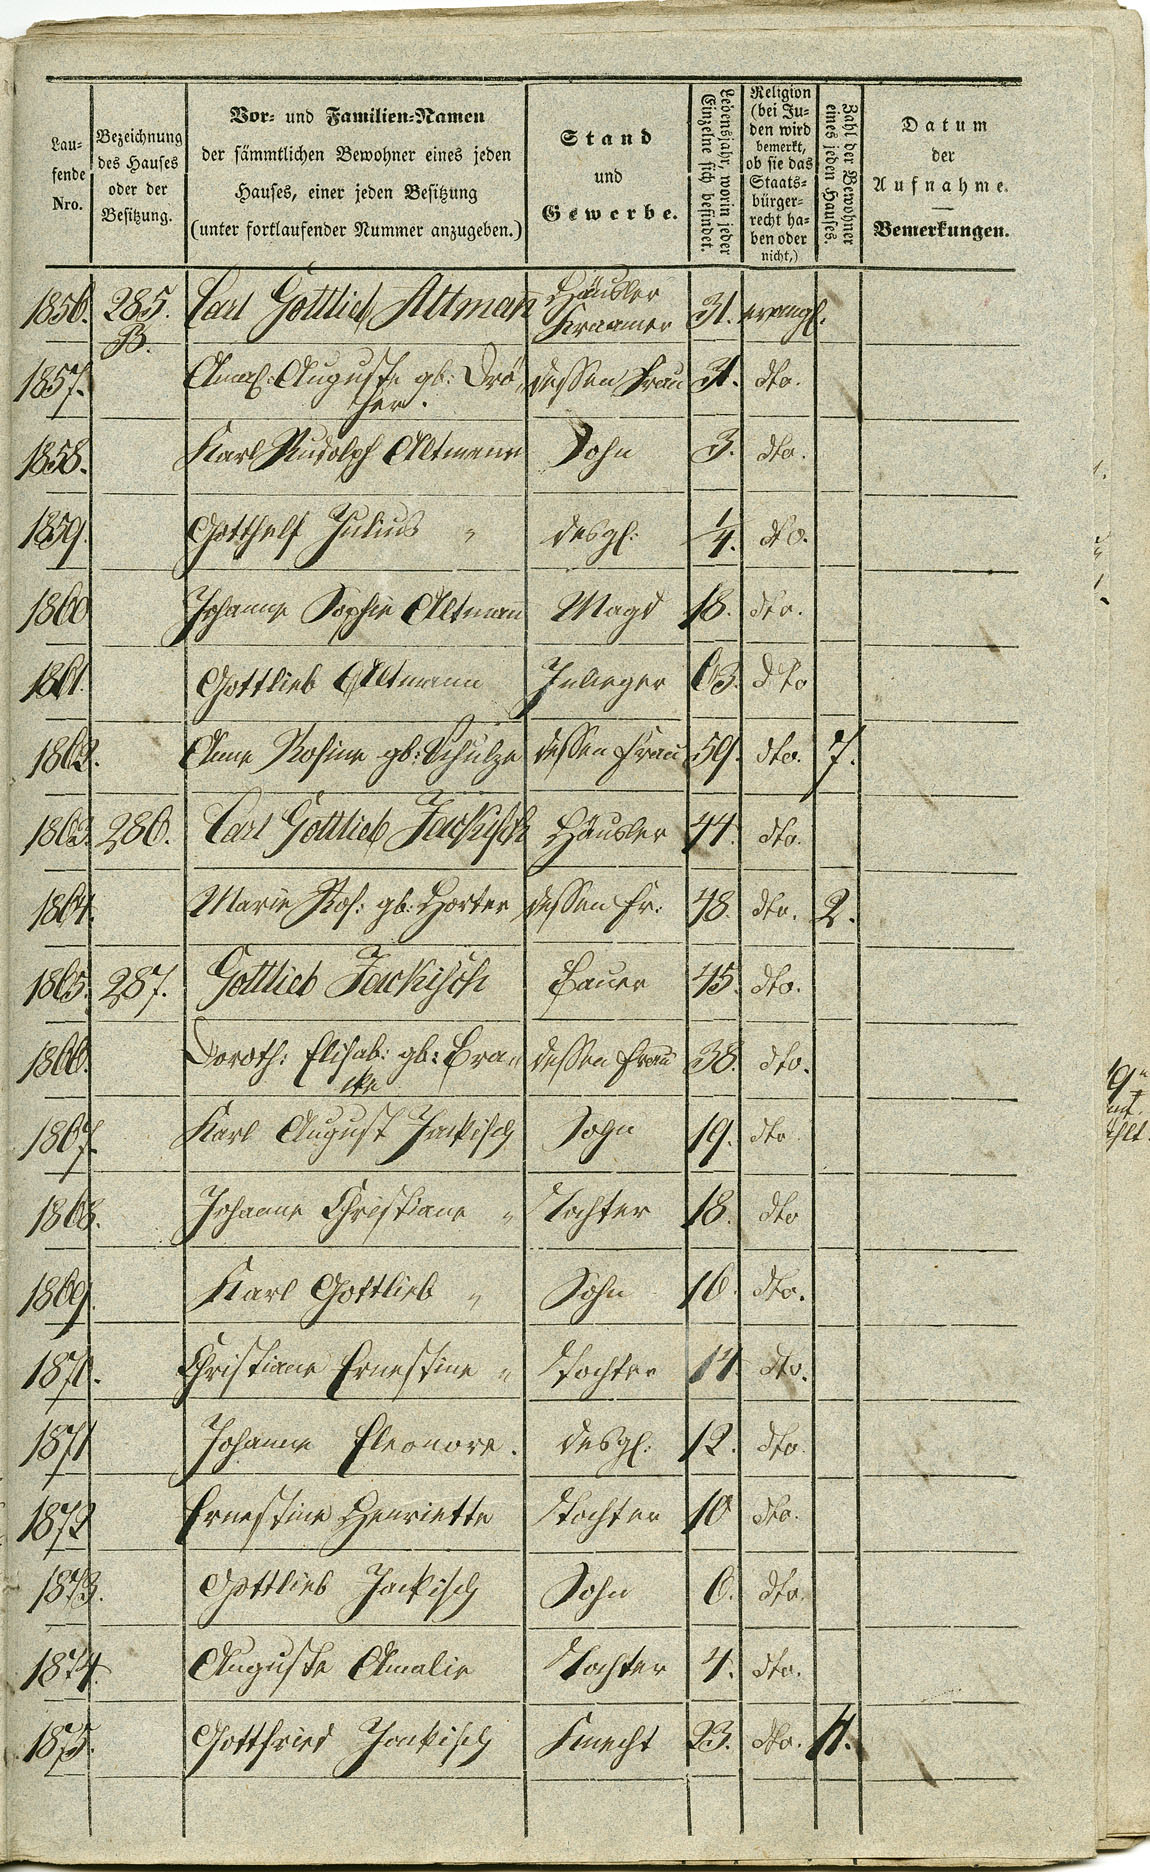 Lau-
fende
Nro.
Bezeichnung
des Hauses
oder der
Besitzung.
Vor- und Familien-Namen
der sämmtlichen Bewohner eines jeden
Hauses, einer jeden Besitzung
(unter fortlaufender Nummer anzugeben.)
Stand
und
Gewerbe.
Lebensjahr, worin jeder
Einzelne sich befindet.
Religion
(bei Ju-
den wird
bemerkt,
ob sie das
Staats-
bürger-
recht ha-
ben oder
nicht,)
Zahl der Bewohner
eines jeden Hauses.
Datum
der
Aufnahme.
Bemerkungen.
1856. 285. Carl Gottlieb Altmañ Häusler 31. evangl.
B. Kraamer
1857. Amal: Auguste gb: Drö- dessen Frau 31. dto.
her.
1858. Karl Rudolph Altmann Sohn 3. dto.
1859. Gotthelf Julius " desgl: 1/4. dto.
1860 Johanne Sophie Altman Magd 18. dto.
1861. Gottlieb Altmann Inlieger 63. dto
1862. Anne Rosine gb: Schulze dessen Frau 59. dto. 7.
1863. 286. Carl Gottlieb Jackisch Häusler 44. dto.
1864. Marie Ros: gb: Horter dessen Fr: 48. dto. 2.
1865. 287. Gottlieb Jackisch Bauer 45. dto.
1866. Doroth: Elisab: gb: Bran dessen Frau 38. dto.
cke
1867. Karl August Jackisch Sohn 19. dto
1868. Johanne Christiane " Tochter 18. dto
1869. Karl Gottlieb " Sohn 16. dto.
1870. Christiane Ernestine " Tochter 14 dto.
1871 Johanne Eleonore. desgl: 12. dto.
1872 Ernestine Henriette Tochter 10 dto.
1873. Gottlieb Jackisch Sohn 6. dto.
1874. Auguste Amalie Tochter 4. dto.
1875. Gottfried Jackisch Knecht 23. dto. 11.